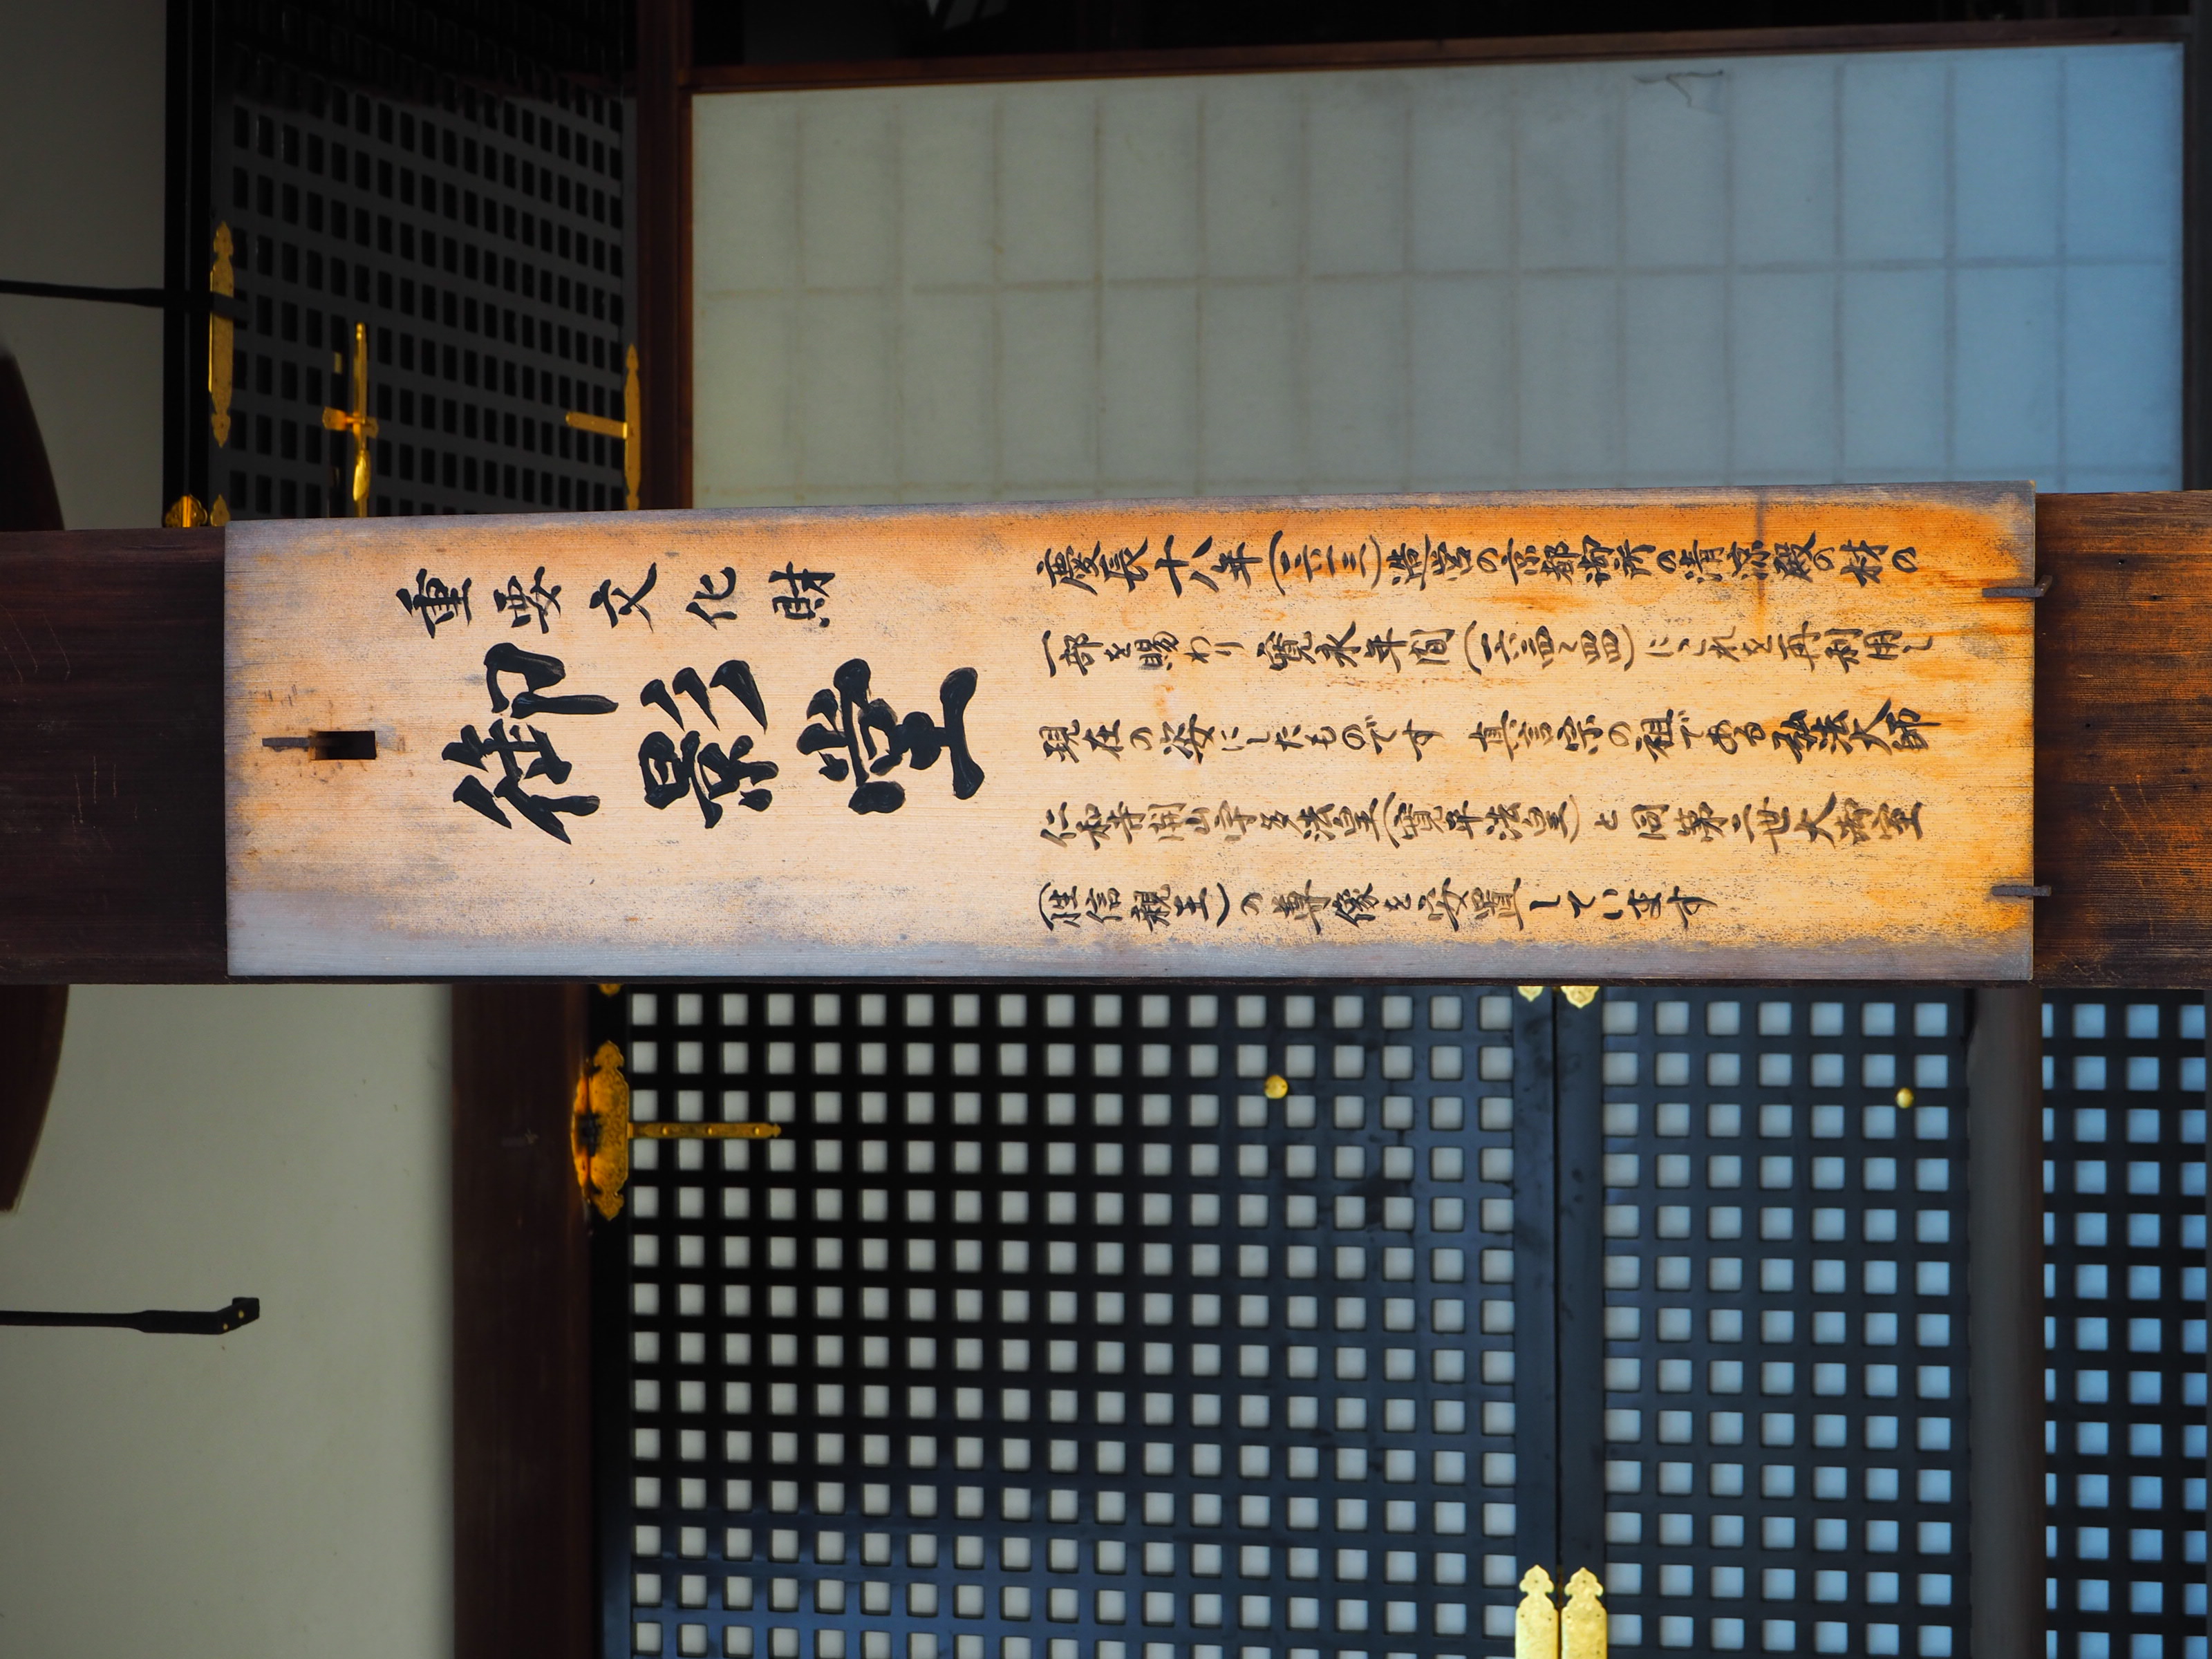 重要文化財
御影堂
慶長十八年(一六一三)造営の京都御所の清涼殿の材の
一部を賜わり寛永年間(一六四一〜四四)にこれを再利用し
現在の姿にしたものです 真言宗の祖である弘法大師
仁和寺開山宇多法皇(寛平法皇)と同第二世大御室
(性信親王)の尊像を安置しています